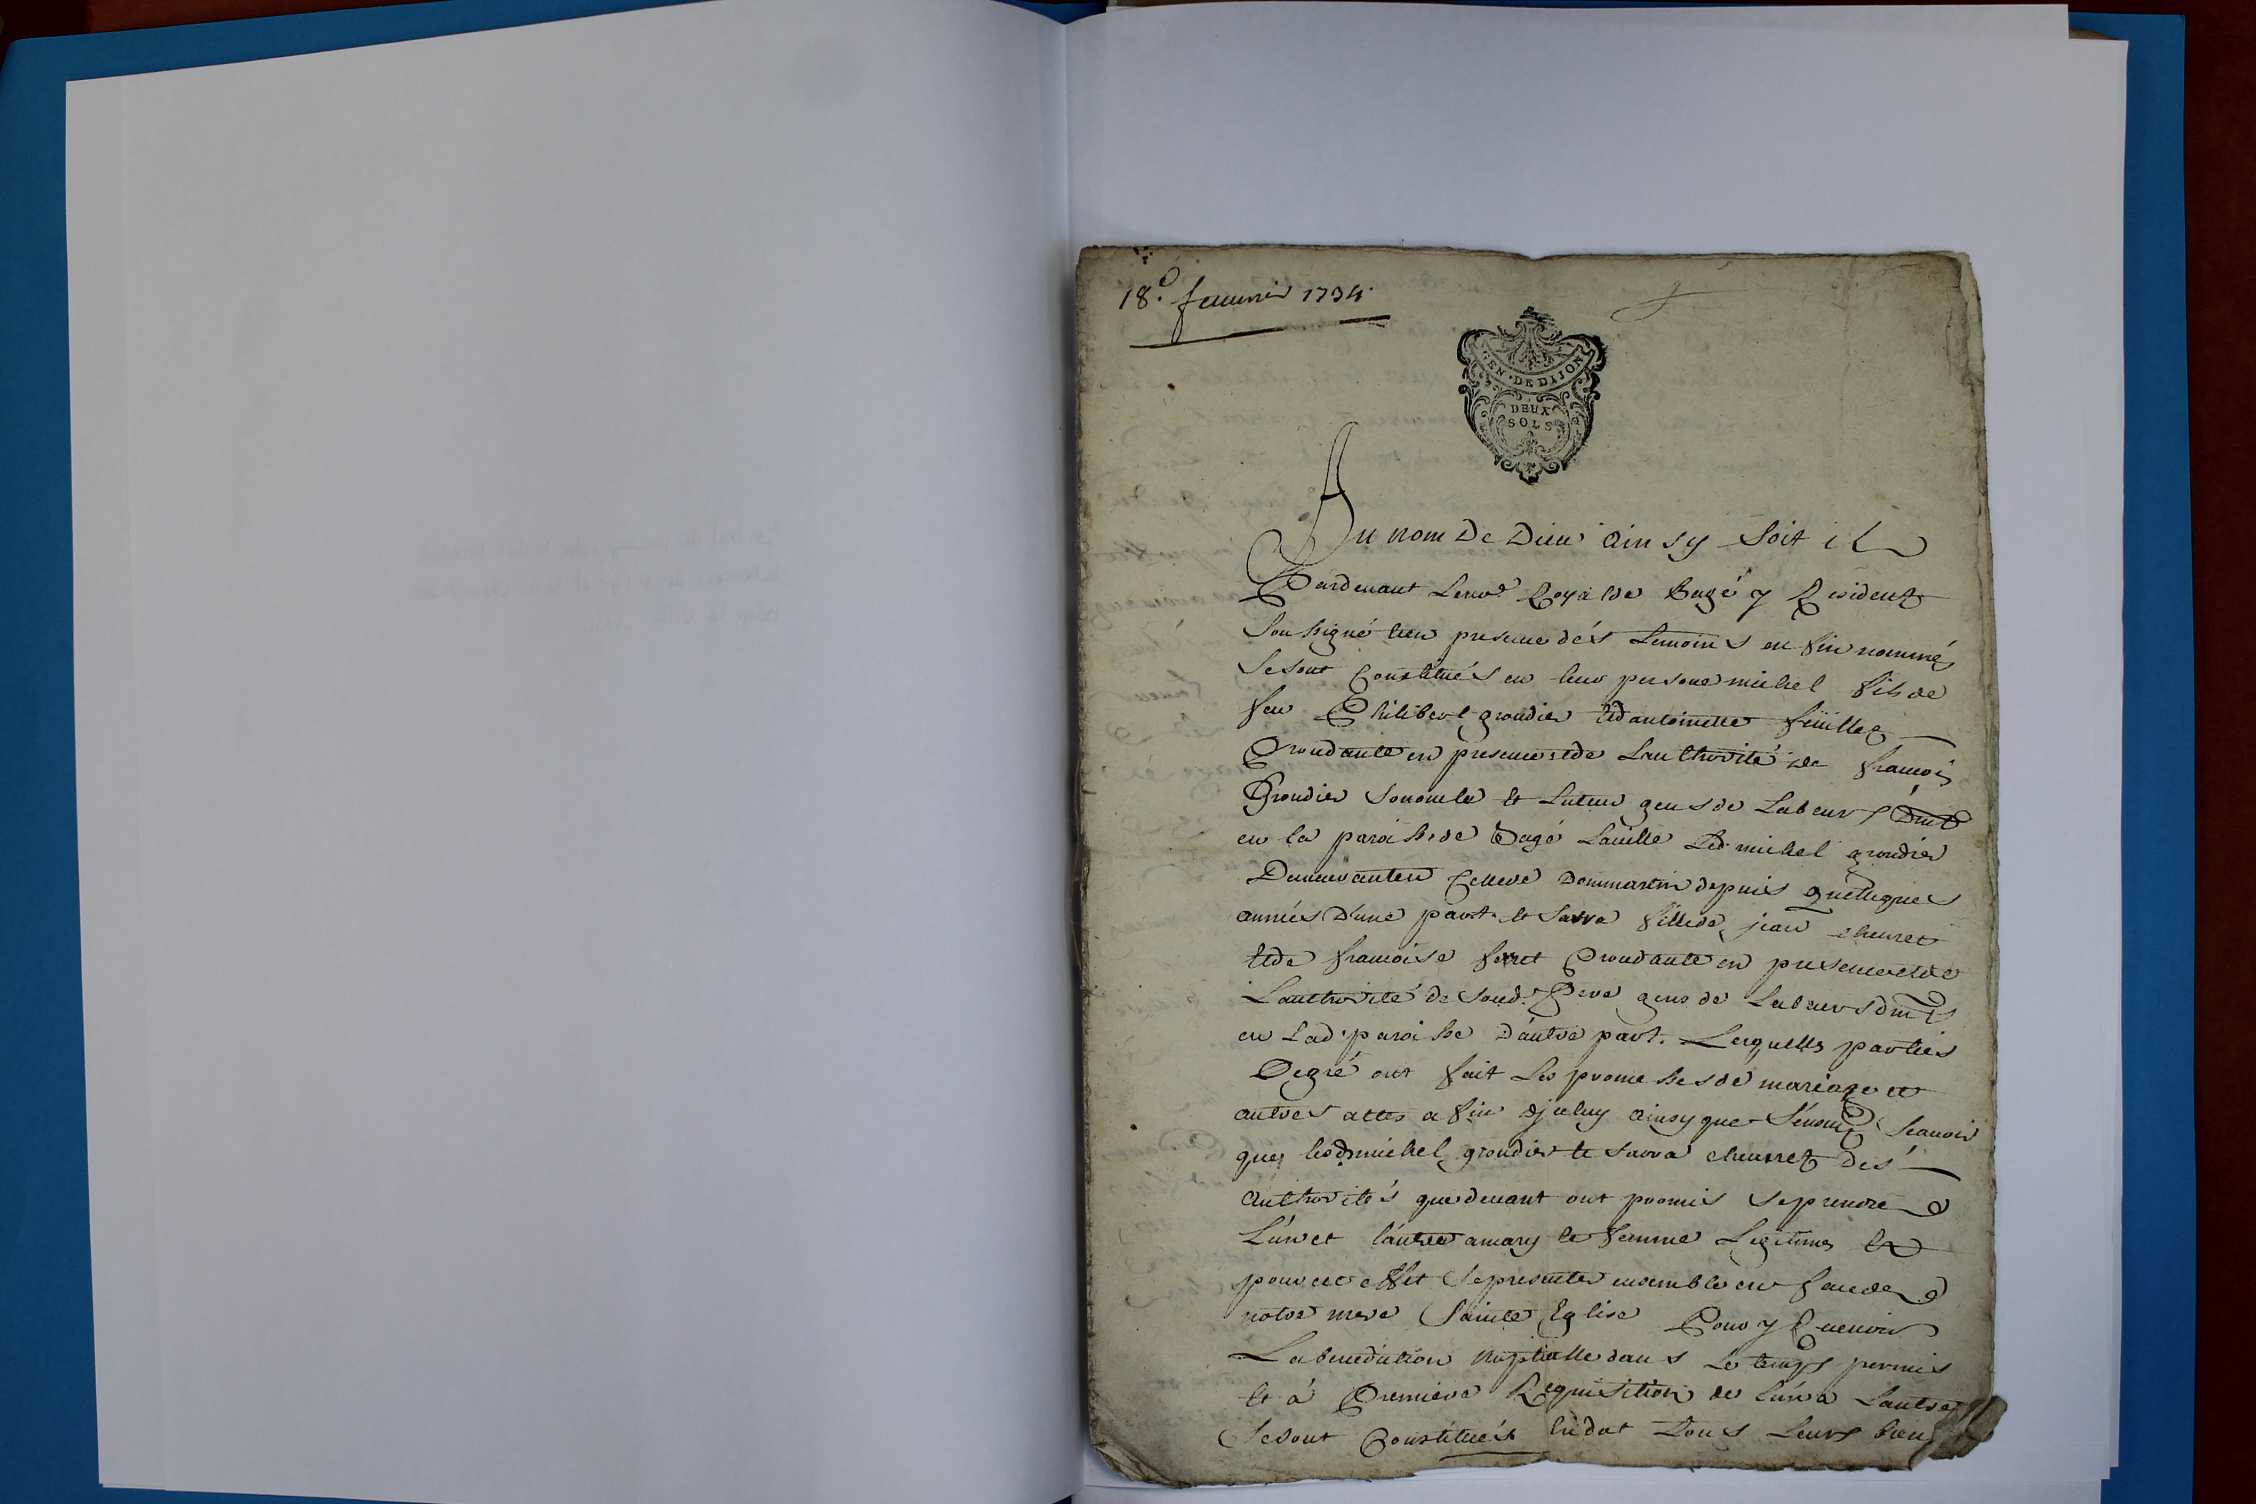 18.e feuurier 1734.
GEN. DE DIJON
DEUX
SOLS
Au nom De Dieu ainsy soit il
Pardeuant Le nore Royal de Bagé y Resident
sousigné et en presence dés temoins en fin nommés
se sont Constitués en leur persone michel fils de
feu Philibert grondier et d'antoinette feüillet
Procedante en presence et de L'authorité de francois
Grondier son oncle et tuteur gens de Labeurs
en la paroisse de Bagé Laville Led. michel grondier
Demeurant en Dommartin depuis quelques
années D'une part et sarra fille de jean cheuret
et de francoise feret Procedante en presence et de
L'authorité de sond. Pere gens de Labeurs dmt
en Lad. paroisse D'autre part. Lesquelles parties
De gré ont fait les promesses de mariage et
autres actes a fin djceluy ainsy que s'ensuit scauoir
que lesd. michel grondier et sarra cheurret dés
authorités que deuant ont promis se prendre
L'un et l'autre a mary et femme Legitimes et
pour cet effet se presenter ensemble en face de
notre mere Sainte Eglise Pour y Receuoir
La benediction Nuptialle dans Le temps permis
et á Premiere Requisition de L'un a L'autre
se sont Constitués en dot tous Leurs biens